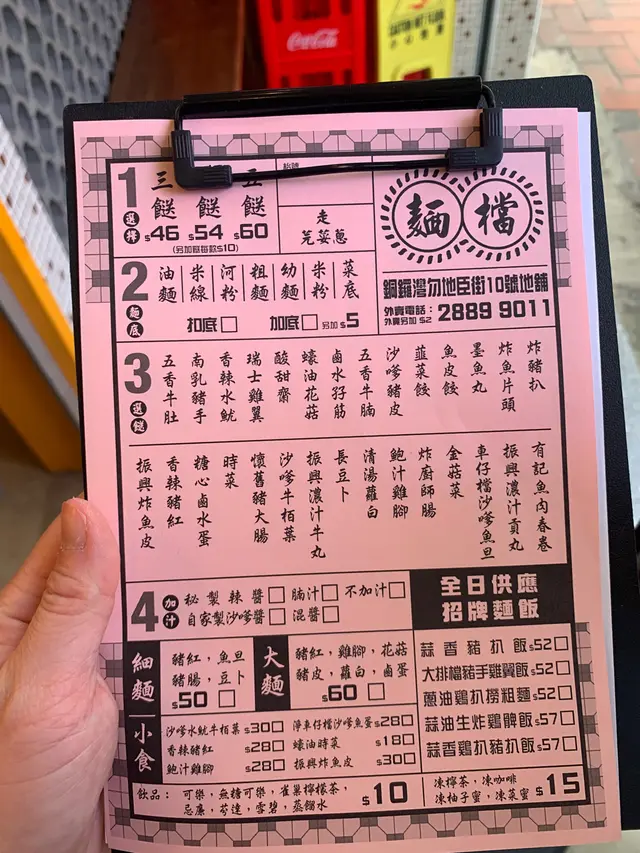 Coca-Cola
1
選擇
三 五
餸 餸 餸
$46 $54 $60
(另加餸每款$10)
走
芫荽蔥
麵檔
銅鑼灣勿地臣街10號地舖
外賣電話:
外賣另加 $2
2889 9011
2
麵底
油麵 米線 河粉 粗麵 幼麵 米粉 菜底
扣底□ 加底□ 另加$5
3
選餸
五香牛肚
南乳豬手
香辣水魷
瑞士雞翼
酸甜齋
蠔油花菇
鹵水孖筋
五香牛腩
沙嗲豬皮
韮菜餃
魚皮餃
墨魚丸
炸魚片頭
炸豬扒
振興炸魚皮
香辣豬紅
糖心鹵水蛋
時菜
懷舊豬大腸
沙嗲牛栢葉
振興濃汁牛丸
長豆卜
清湯蘿白
鮑汁雞腳
炸廚師腸
金菇菜
車仔檔沙嗲魚旦
振興濃汁貢丸
有記魚肉春卷
4
加汁
秘製辣醬□ 腩汁□ 不加汁□
自家製沙嗲醬□ 混醬□
全日供應
招牌麵飯
細麵
豬紅,魚旦
豬腸,豆卜
$50□
大麵
豬紅,雞腳,花菇
豬皮,蘿白,鹵蛋
$60□
蒜香豬扒飯$52□
大排檔豬手雞翼飯$52□
蔥油鷄扒撈粗麵$52□
蒜油生炸鷄髀飯$57□
蒜香鷄扒豬扒飯$57□
小食
沙嗲水魷牛栢葉$30□ 淨車仔檔沙嗲魚蛋$28□
香辣豬紅 $28□ 蠔油時菜 $18□
鮑汁雞腳 $28□ 振興炸魚皮 $30□
飲品: 可樂,無糖可樂,雀巢檸檬茶,
忌廉,芬達,雪碧,蒸餾水
$10
凍檸茶,凍咖啡
凍柚子蜜,凍菜蜜
$15